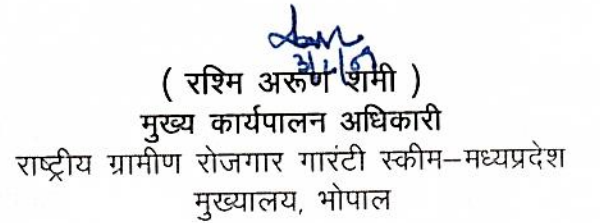 ( रश्मि अरूण शमी )
मुख्य कार्यपालन अधिकारी
राष्ट्रीय ग्रामीण रोजगार गारंटी स्कीम–मध्यप्रदेश
मुख्यालय, भोपाल